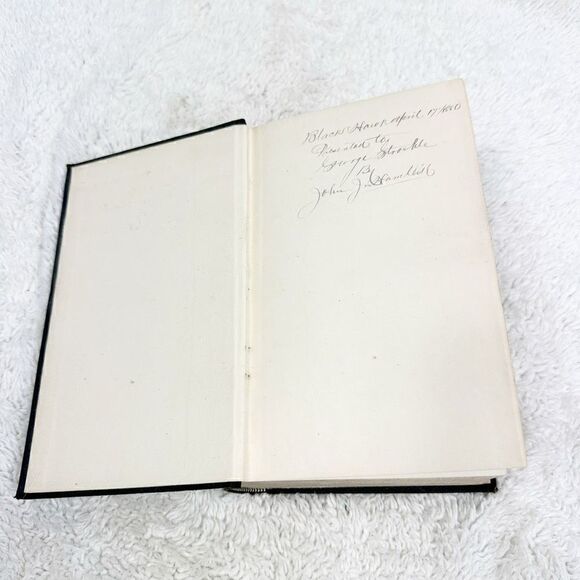 Black Hawk April 17/1880
Presented to
George Stroehle
By
John J. Hamllik